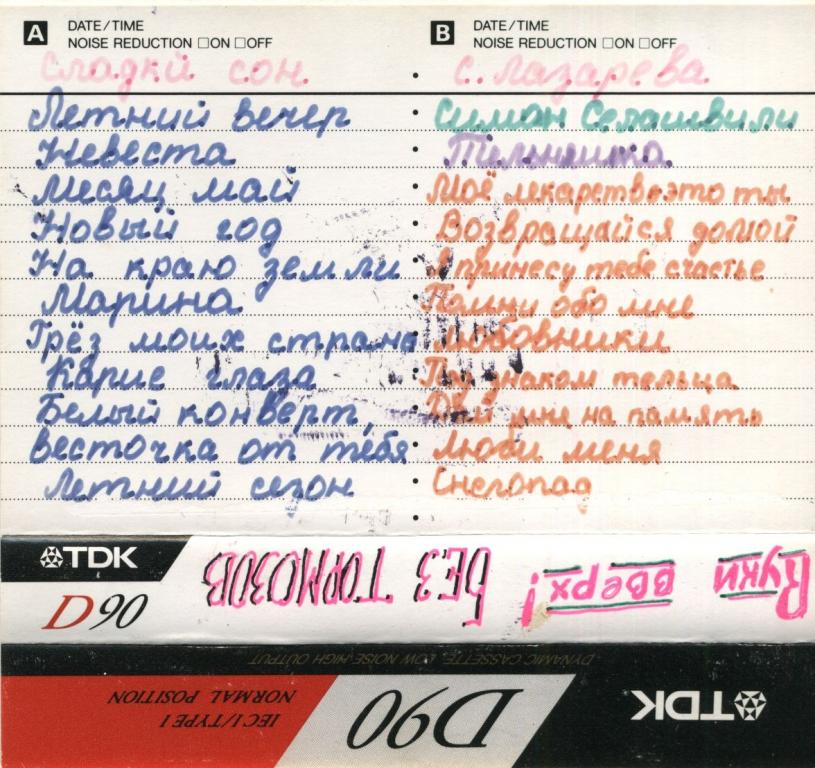 A DATE/TIME
NOISE REDUCTION □ON □OFF
Сладкй сон
Летний вечер
Невеста
Месяц май
Новый год
На краю земли
Марина
Грёз моих страна
Карие глаза
Белый конверт,
весточка от тебя
Летний сезон
B DATE/TIME
NOISE REDUCTION □ON □OFF
С. Лазарева
Симон Селашвили
Тельняшка
Моё лекарство это ты
Возвращайся домой
Я принесу тебе счастье
Помни обо мне
Любовники
Под знаком тельца
Дай мне на память
Люби меня
Снегопад
TDK
D90
Руки вверх! БЕЗ ТОРМОЗОВ
DYNAMIC CASSETTE, LOW NOISE HIGH OUTPUT
TDK D90
IEC I/TYPE I
NORMAL POSITION